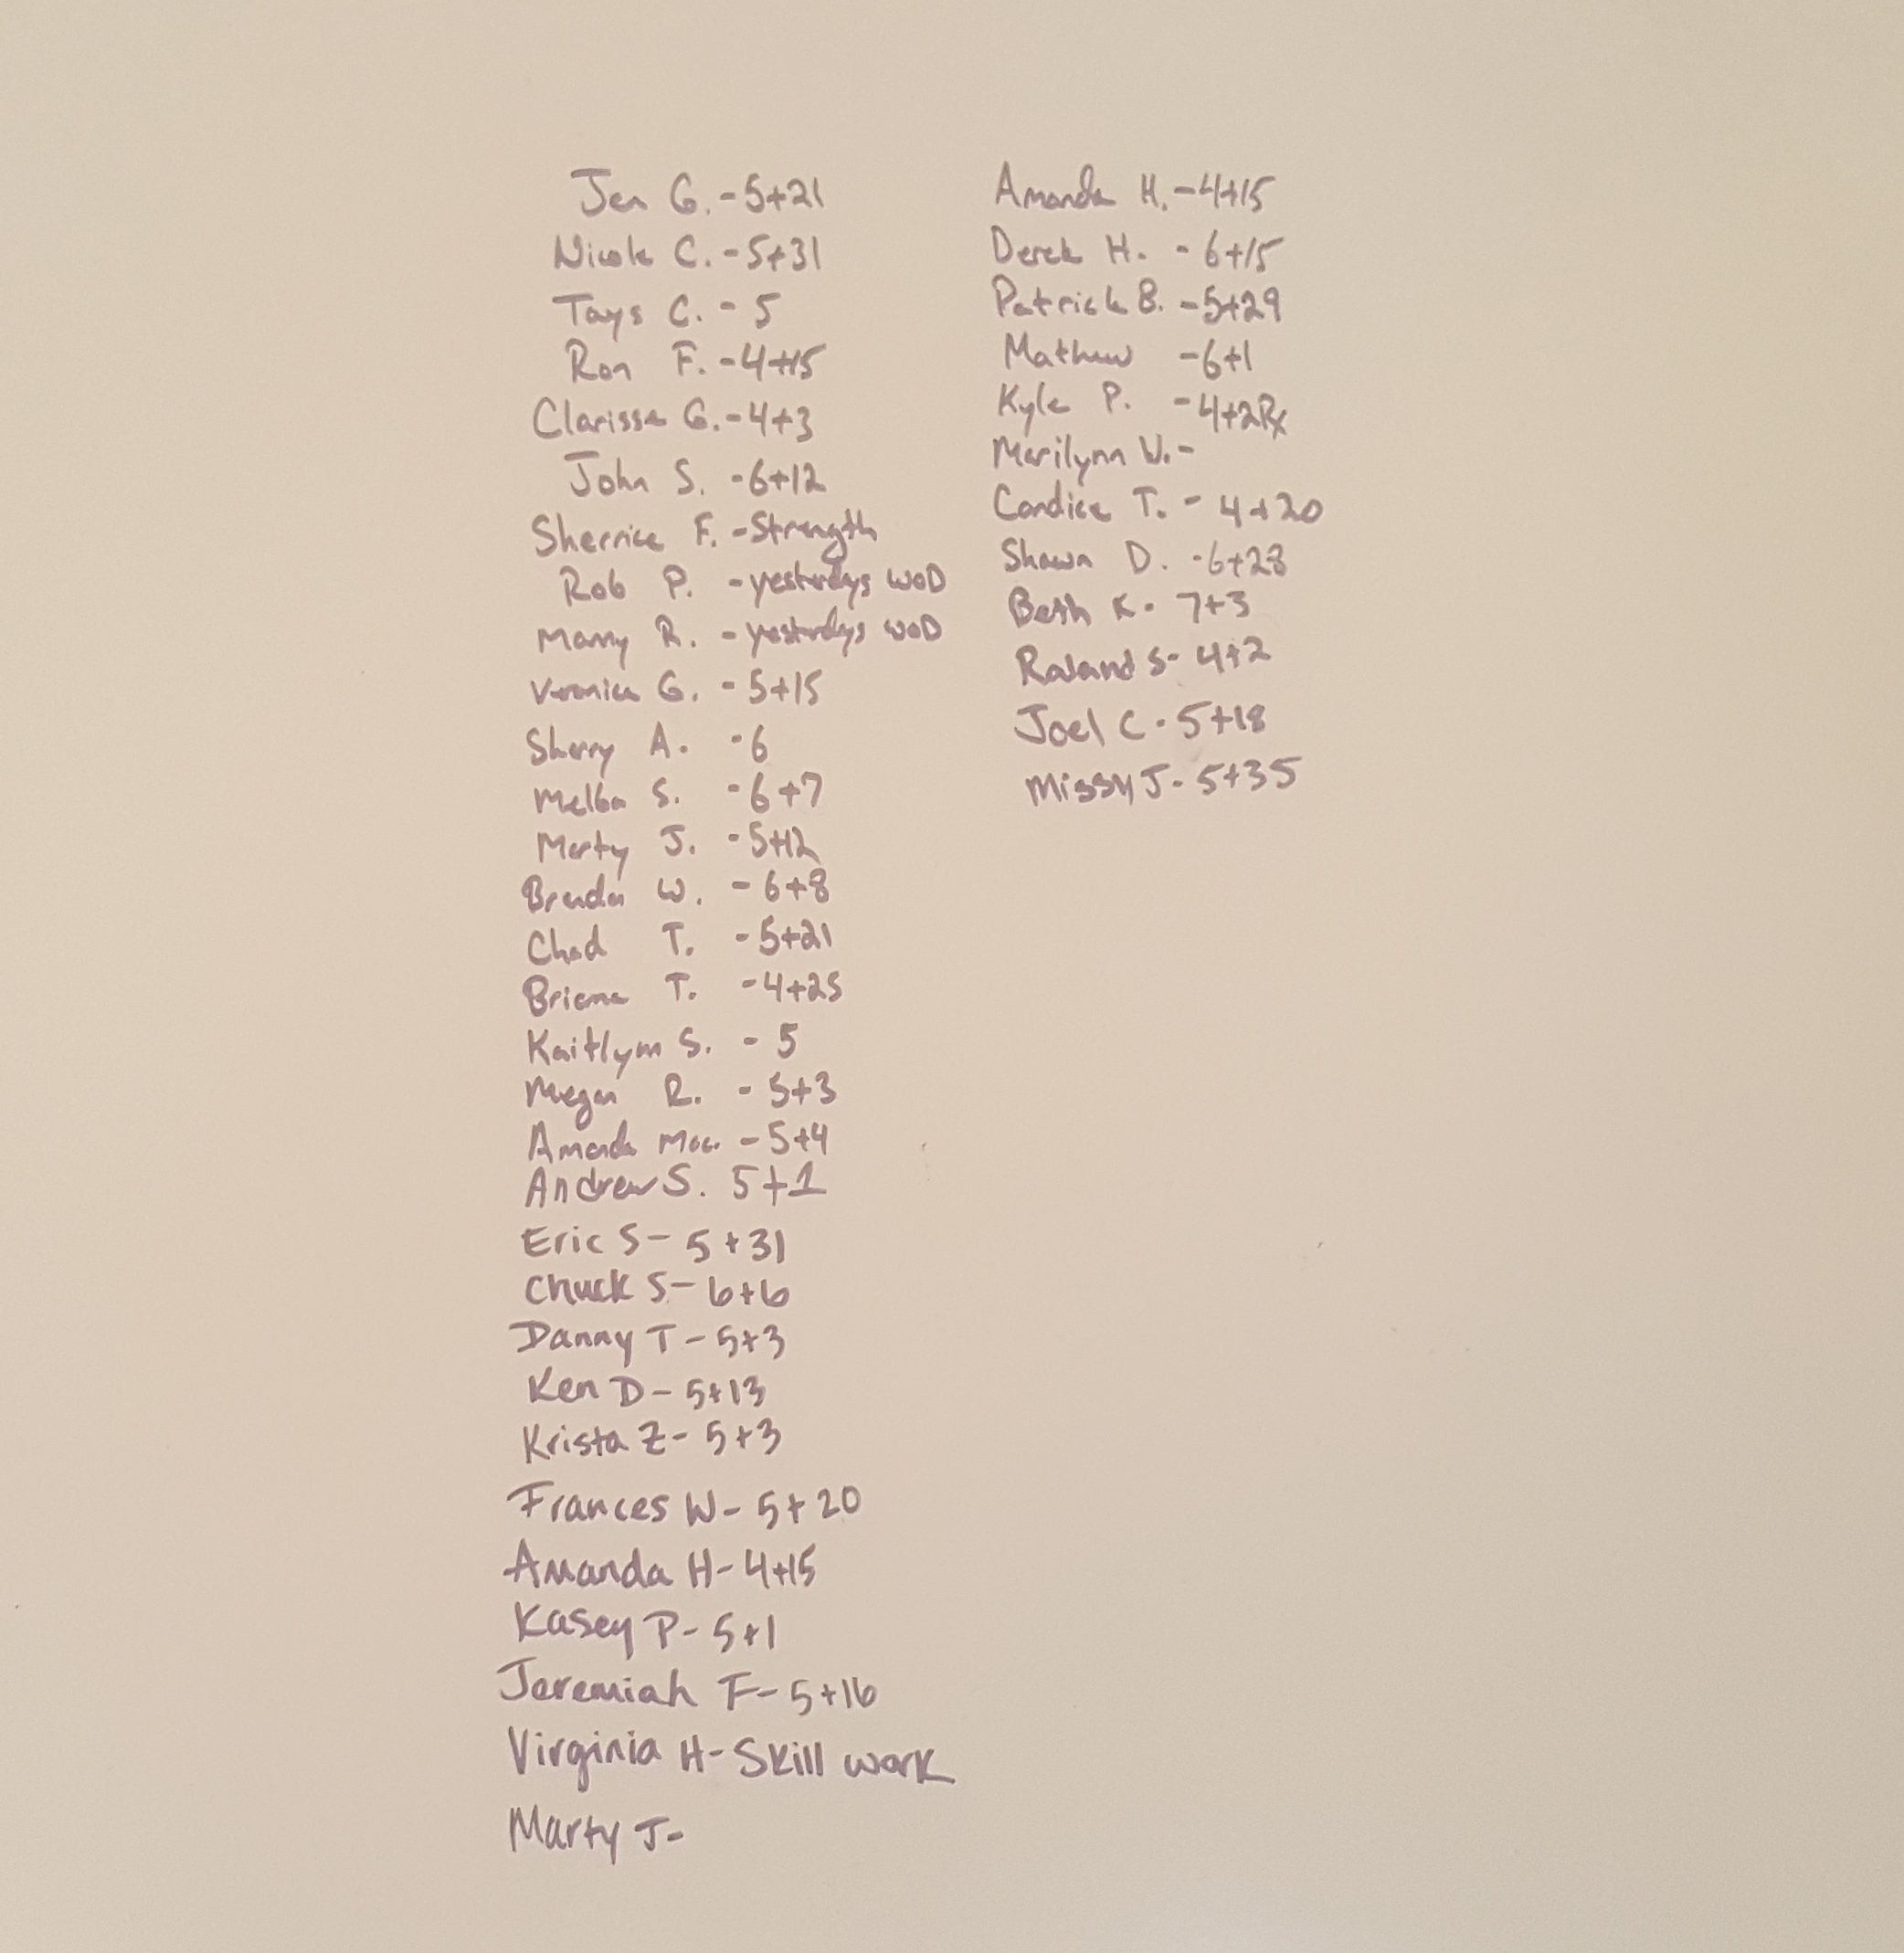 Jen G. - 5+21
Nicole C. - 5+31
Tays C. - 5
Ron F. - 4+15
Clarissa G. - 4+3
John S. - 6+12
Sherrice F. - Strength
Rob P. - yesterdays WOD
Manny R. - yesterdays WOD
Veronica G. - 5+15
Sherry A. - 6
Melba S. - 6+7
Marty J. - 5+12
Brenda W. - 6+8
Chad T. - 5+21
Briana T. - 4+25
Kaitlynn S. - 5
Megan R. - 5+3
Amanda - 5+4
Andrew S. 5+1
Eric S - 5+31
Chuck S - 6+6
Danny T - 5+3
Ken D - 5+13
Krista Z - 5+3
Frances W - 5+20
Amanda H - 4+15
Kasey P - 5+1
Jeremiah F - 5+16
Virginia H - Skill work
Marty J -
Amanda H. - 4+15
Derek H. - 6+15
Patrick B. - 5+29
Mathew - 6+1
Kyle P. - 4+2Rx
Marilynn W. -
Candice T. - 4+20
Shawn D. - 6+28
Beth K - 7+3
Roland S - 4+2
Joel C - 5+18
Missy J - 5+35